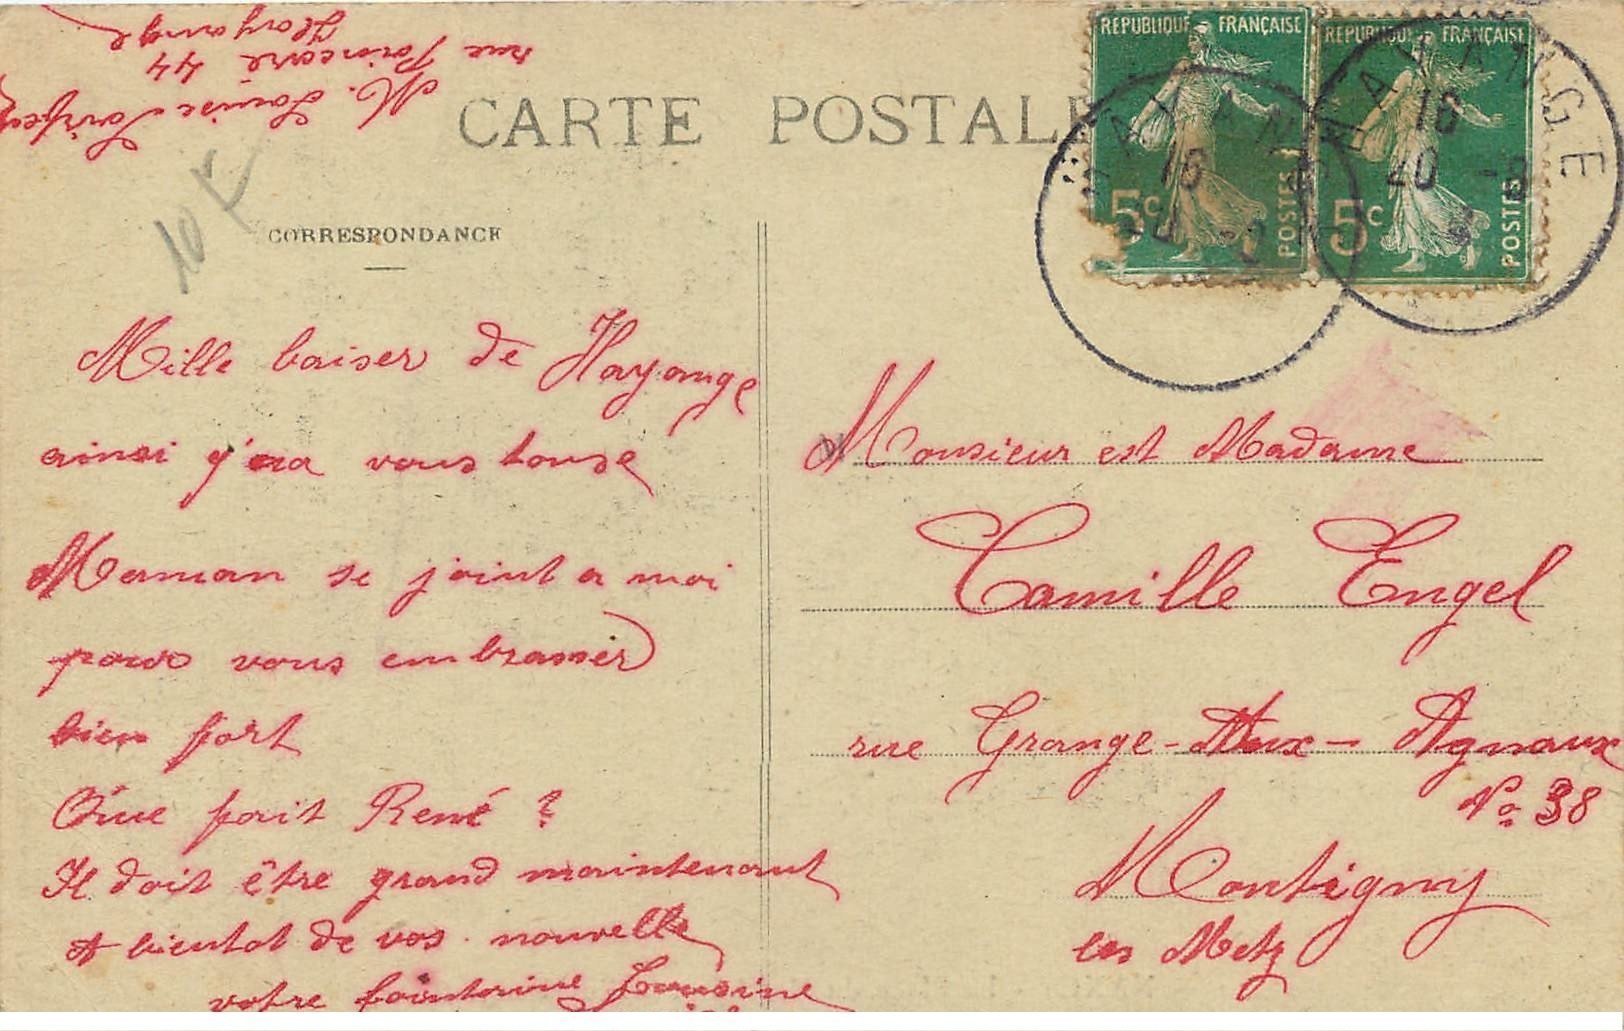 M. Louise
rue Poincaré 44
Hayange
CARTE POSTALE
REPUBLIQUE FRANÇAISE
5c POSTES
REPUBLIQUE FRANÇAISE
5c POSTES
HAYANGE
16
HAYANGE
16
20 -8
10 F
CORRESPONDANCE
Mille baiser de Hayange
ainsi q'na vous touse
Maman se joint a moi
pour vous embrasser
bien fort
Que fait René ?
Il doit être grand maintenant
A bientot de vos nouvelle
votre
Monsieur est Madame
Camille Engel
rue Grange-Aux-Agnaux
No 38
Montigny
les Metz